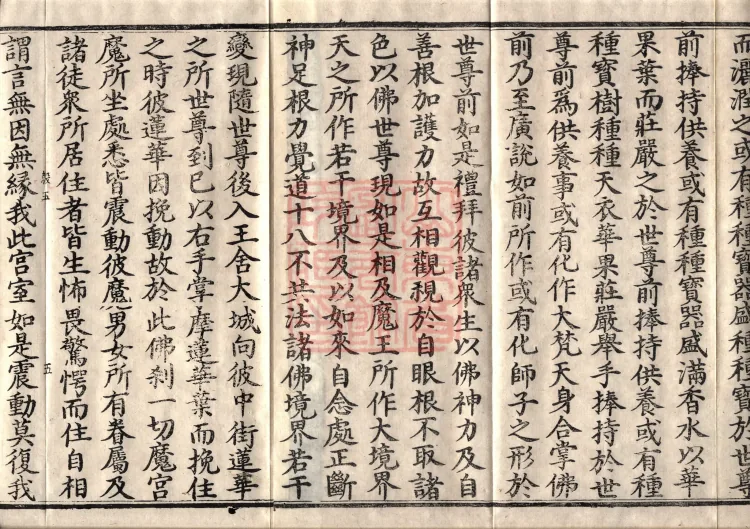 而灑潤之或有種種寶器盛種種寶於世尊
前捧持供養或有種種寶器盛滿香水以華
果葉而莊嚴之於世尊前捧持供養或有種
種寶樹種種天衣華果莊嚴舉手捧持於世
尊前爲供養事或有化作大梵天身合掌佛
前乃至廣說如前所作或有化師子之形於
世尊前如是禮拜彼諸衆生以佛神力及自
善根加護力故互相觀視於自眼根不取諸
色以佛世尊現如是相及魔王所作大境界
天之所作若干境界及以如來自念處正斷
神足根力覺道十八不共法諸佛境界若干
變現隨世尊後入王舍大城向彼中街蓮華
之所世尊到已以右手掌摩蓮華葉而挽住
之時彼蓮華因挽動故於此佛刹一切魔宮
魔所坐處悉皆震動彼魔男女所有眷屬及
諸徒衆所居住者皆生怖畏驚愕而住自相
五
謂言無因無緣我此宮室如是震動莫復我